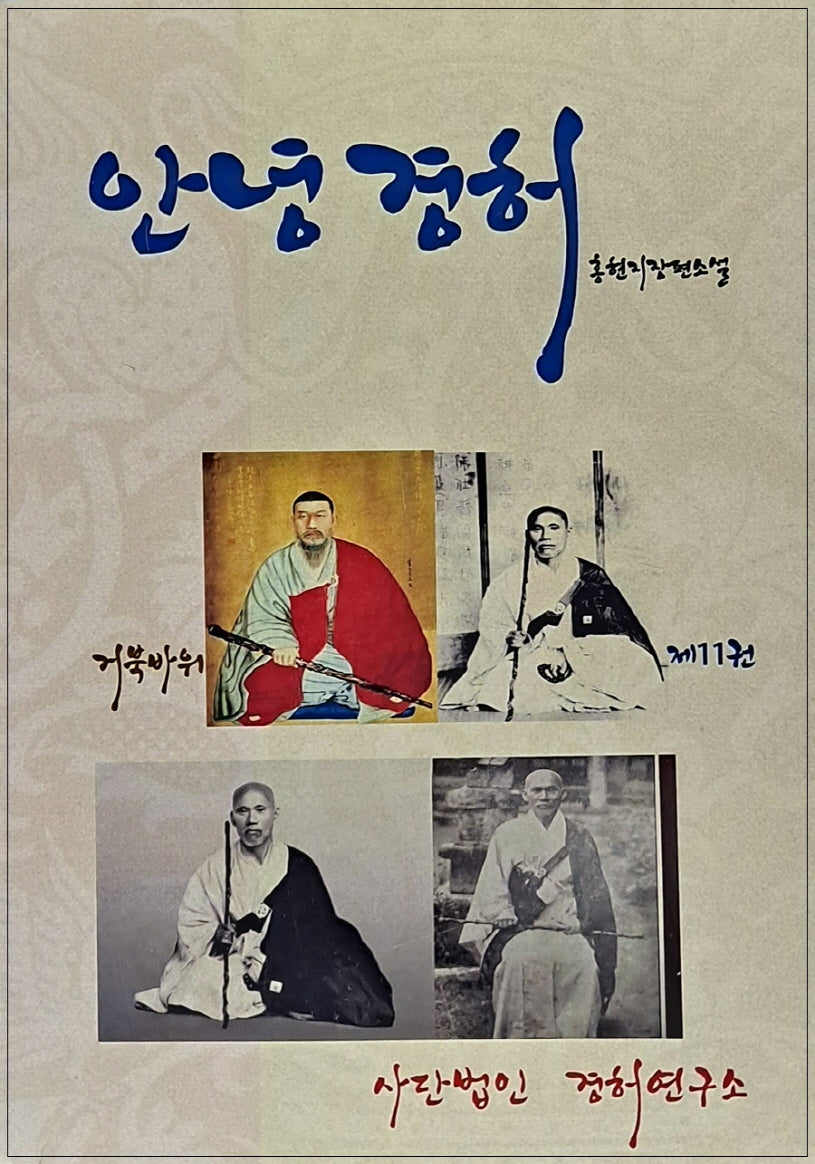 안녕 경허
홍현지장편소설
거북바위
제11권
사단법인 경허연구소